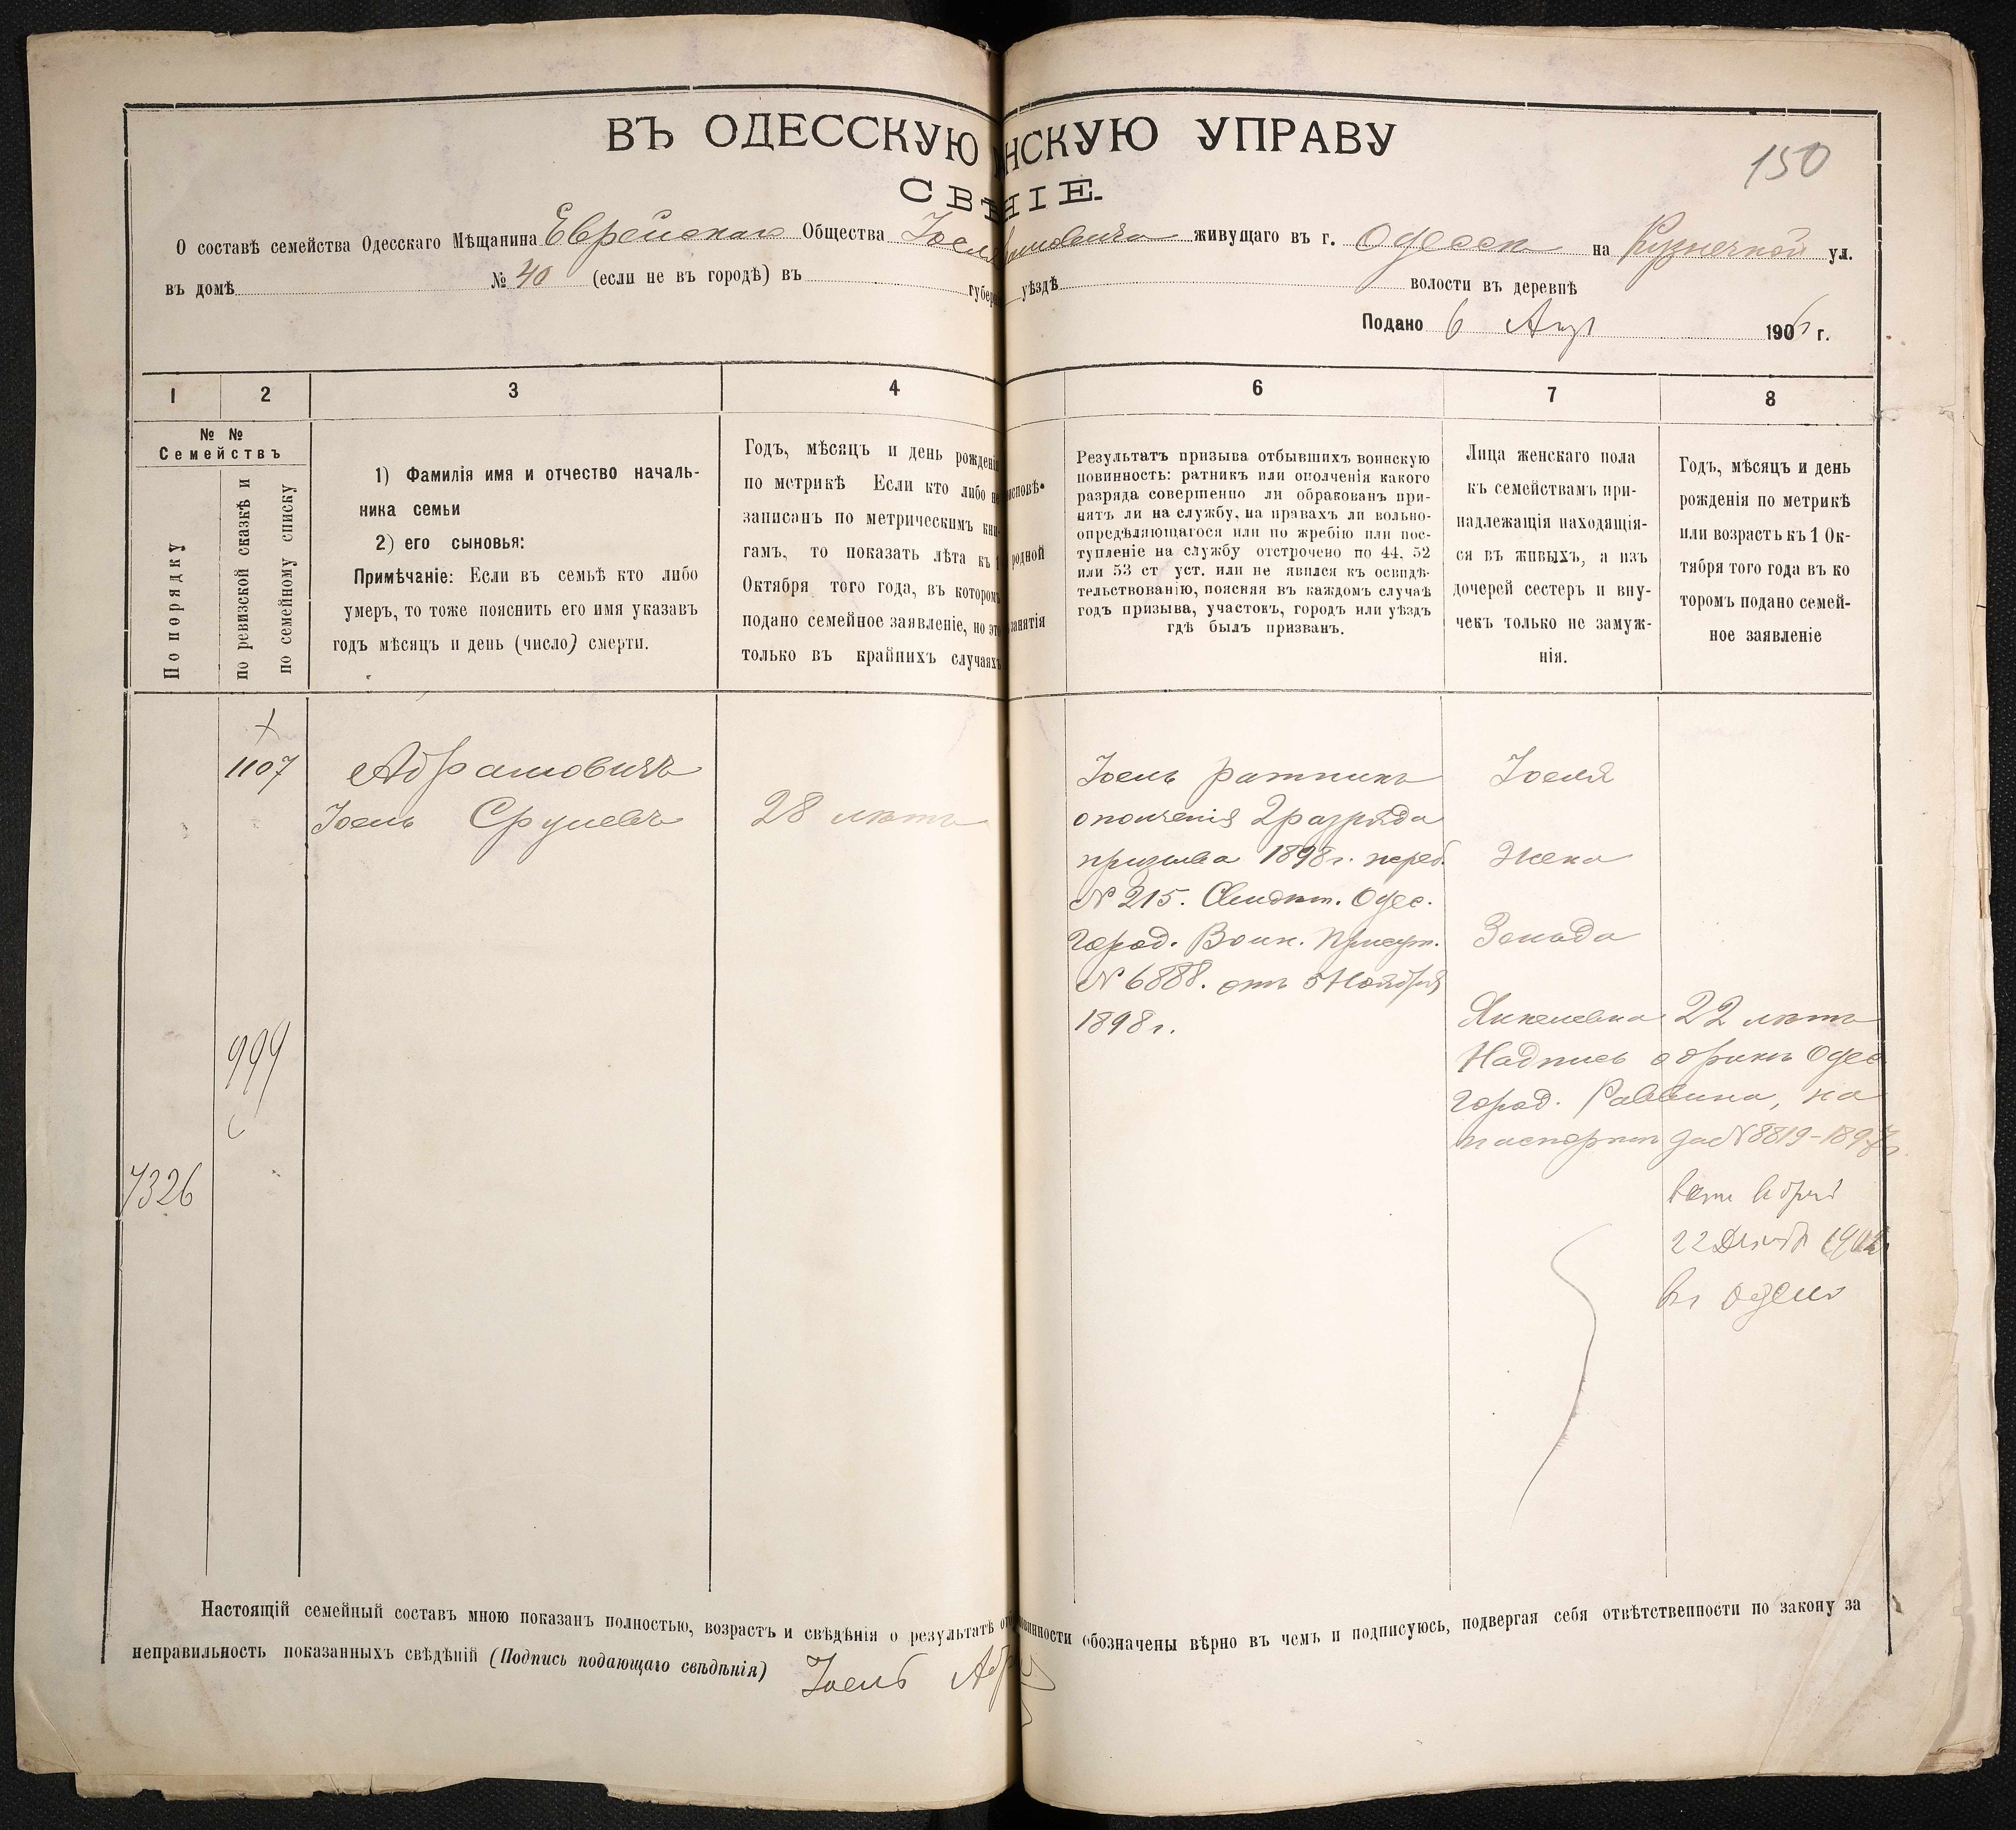 ВЪ ОДЕССКУЮ НСКУЮ УПРАВУ
150
СВѢНІЕ.
О составѣ семейства Одесскаго Мѣщанина Еврейскаго Общества Іосля мовича живущаго въ г. Одессѣ на Кузнечной ул.
въ домѣ № 40 (если не въ городѣ) въ губер уѣздѣ волости въ деревнѣ
Подано 6 190 г.
1 2 3 4 6 7 8
№ №
Семействъ
По порядку
по ревизской сказкѣ и
по семейному списку
1) Фамилія имя и отчество началь-
ника семьи
2) его сыновья:
Примѣчаніе: Если въ семьѣ кто либо
умеръ, то тоже пояснить его имя указавъ
годъ мѣсяцъ и день (число) смерти.
Годъ, мѣсяцъ и день рожденія
по метрикѣ Если кто либо не
записанъ по метрическимъ кни-
гамъ, то показать лѣта къ 1
Октября того года, въ которомъ
подано семейное заявленіе, но это
только въ крайнихъ случаяхъ
исповѣ-
родной
занятія
Результатъ призыва отбывшихъ воинскую
повинность: ратникъ или ополченія какого
разряда совершенно ли обракованъ при-
нятъ ли на службу, на правахъ ли вольно-
опредѣляющагося или по жребію или пос-
тупленіе на службу отстрочено по 44, 52
или 53 ст уст. или не явился къ освидѣ-
тельствованію, поясняя въ каждомъ случаѣ
годъ призыва, участокъ, городъ или уѣздъ
гдѣ былъ призванъ.
Лица женскаго пола
къ семействамъ при-
надлежащія находящія-
ся въ живыхъ, а изъ
дочерей сестеръ и вну-
чекъ только не замуж-
нія.
Годъ, мѣсяцъ и день
рожденія по метрикѣ
или возрастъ къ 1 Ок-
тября того года въ ко
торомъ подано семей-
ное заявленіе
1107
Абрамовичъ
Іосль Срулевъ
28 лѣтъ
999
7326
Іосль ратникъ
ополченія 2 разряда
призыва 1898 г. жереб.
№ 215. Свидѣт. Одес.
Город. Воин. Присут.
№ 6888. отъ 5 Ноября
1898 г.
Іосля
Жена
Зельда
Янкелевна 22 лѣтъ
Надпись о бракѣ Одес
Город. Раввина, на
паспортѣ за № 8819-1897
22 Декаб
въ Одессѣ
Настоящій семейный составъ мною показанъ полностью, возрастъ и свѣдѣнія о результатѣ от овинности обозначены вѣрно въ чемъ и подписуюсь, подвергая себя отвѣтственности по закону за
неправильность показанныхъ свѣдѣній (Подпись подающаго свѣдѣнія) Іосль Абр